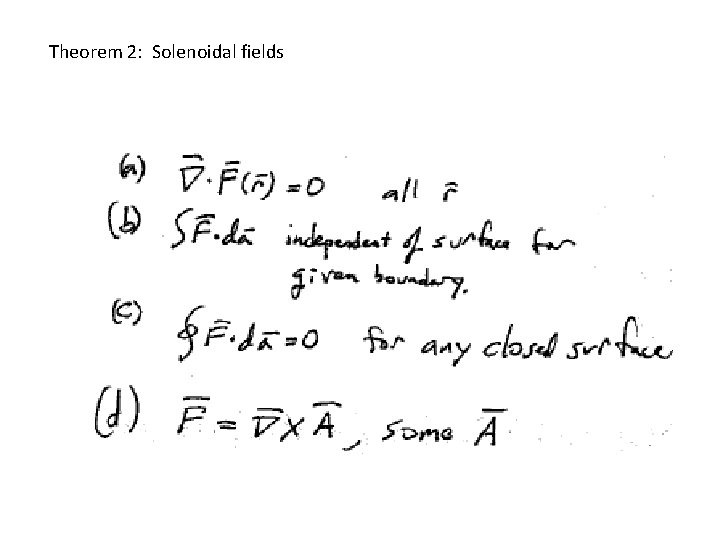 Theorem 2: Solenoidal fields
(a) ∇̄·F̄(r̄) = 0 all r̄
(b) ∫F̄·dā independent of surface for
given boundary.
(c) ∮F̄·dā = 0 for any closed surface
(d) F̄ = ∇̄ × Ā, some Ā